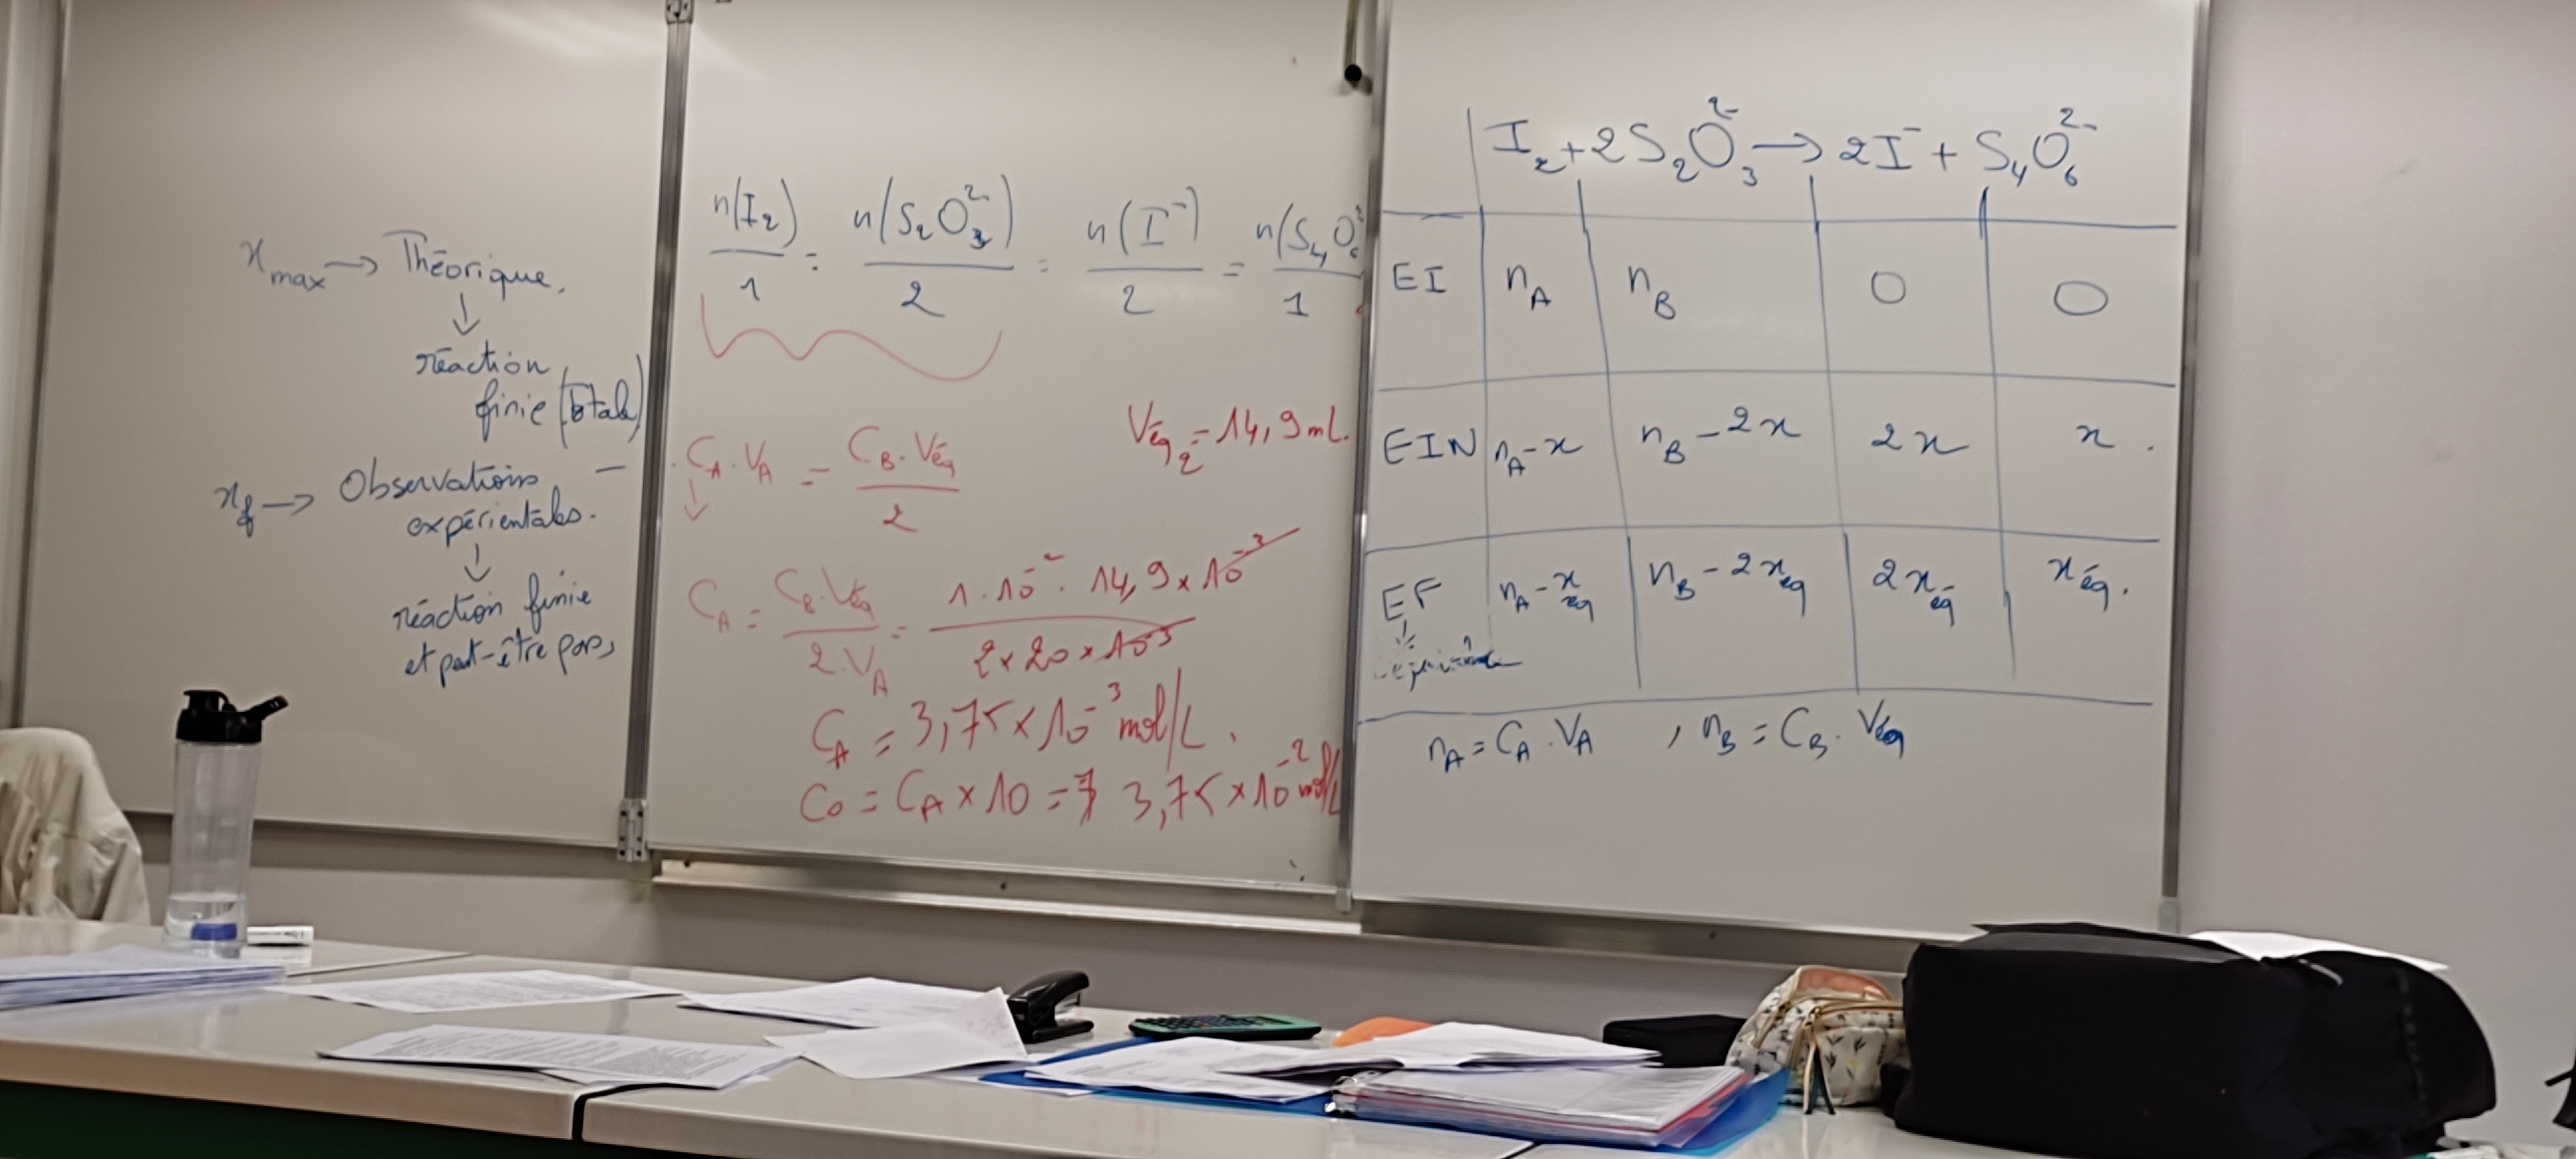 x max → Théorique.
↓
réaction
finie (totale)
x f → Observations –
expérientales.
↓
réaction finie
et peut-être pas,
n(I₂)/1 = n(S₂O₃²⁻)/2 = n(I⁻)/2 = n(S₄O₆²⁻)/1
Véq₂ = 14,9 mL.
C_A . V_A = C_B . Véq / 2
↓
C_A = C_B . Véq / 2 . V_A = 1 . 10⁻² . 14,9 × 10⁻³ / 2 × 20 × 10⁻³
C_A = 3,75 × 10⁻³ mol/L.
C₀ = C_A × 10 = 3,75 × 10⁻² mol/L
I₂ + 2 S₂O₃²⁻ → 2 I⁻ + S₄O₆²⁻
EI n_A n_B 0 0
EIN n_A – x n_B – 2x 2x x .
EF n_A – x éq n_B – 2x éq 2x éq x éq.
↓
n_A = C_A . V_A , n_B = C_B . Véq